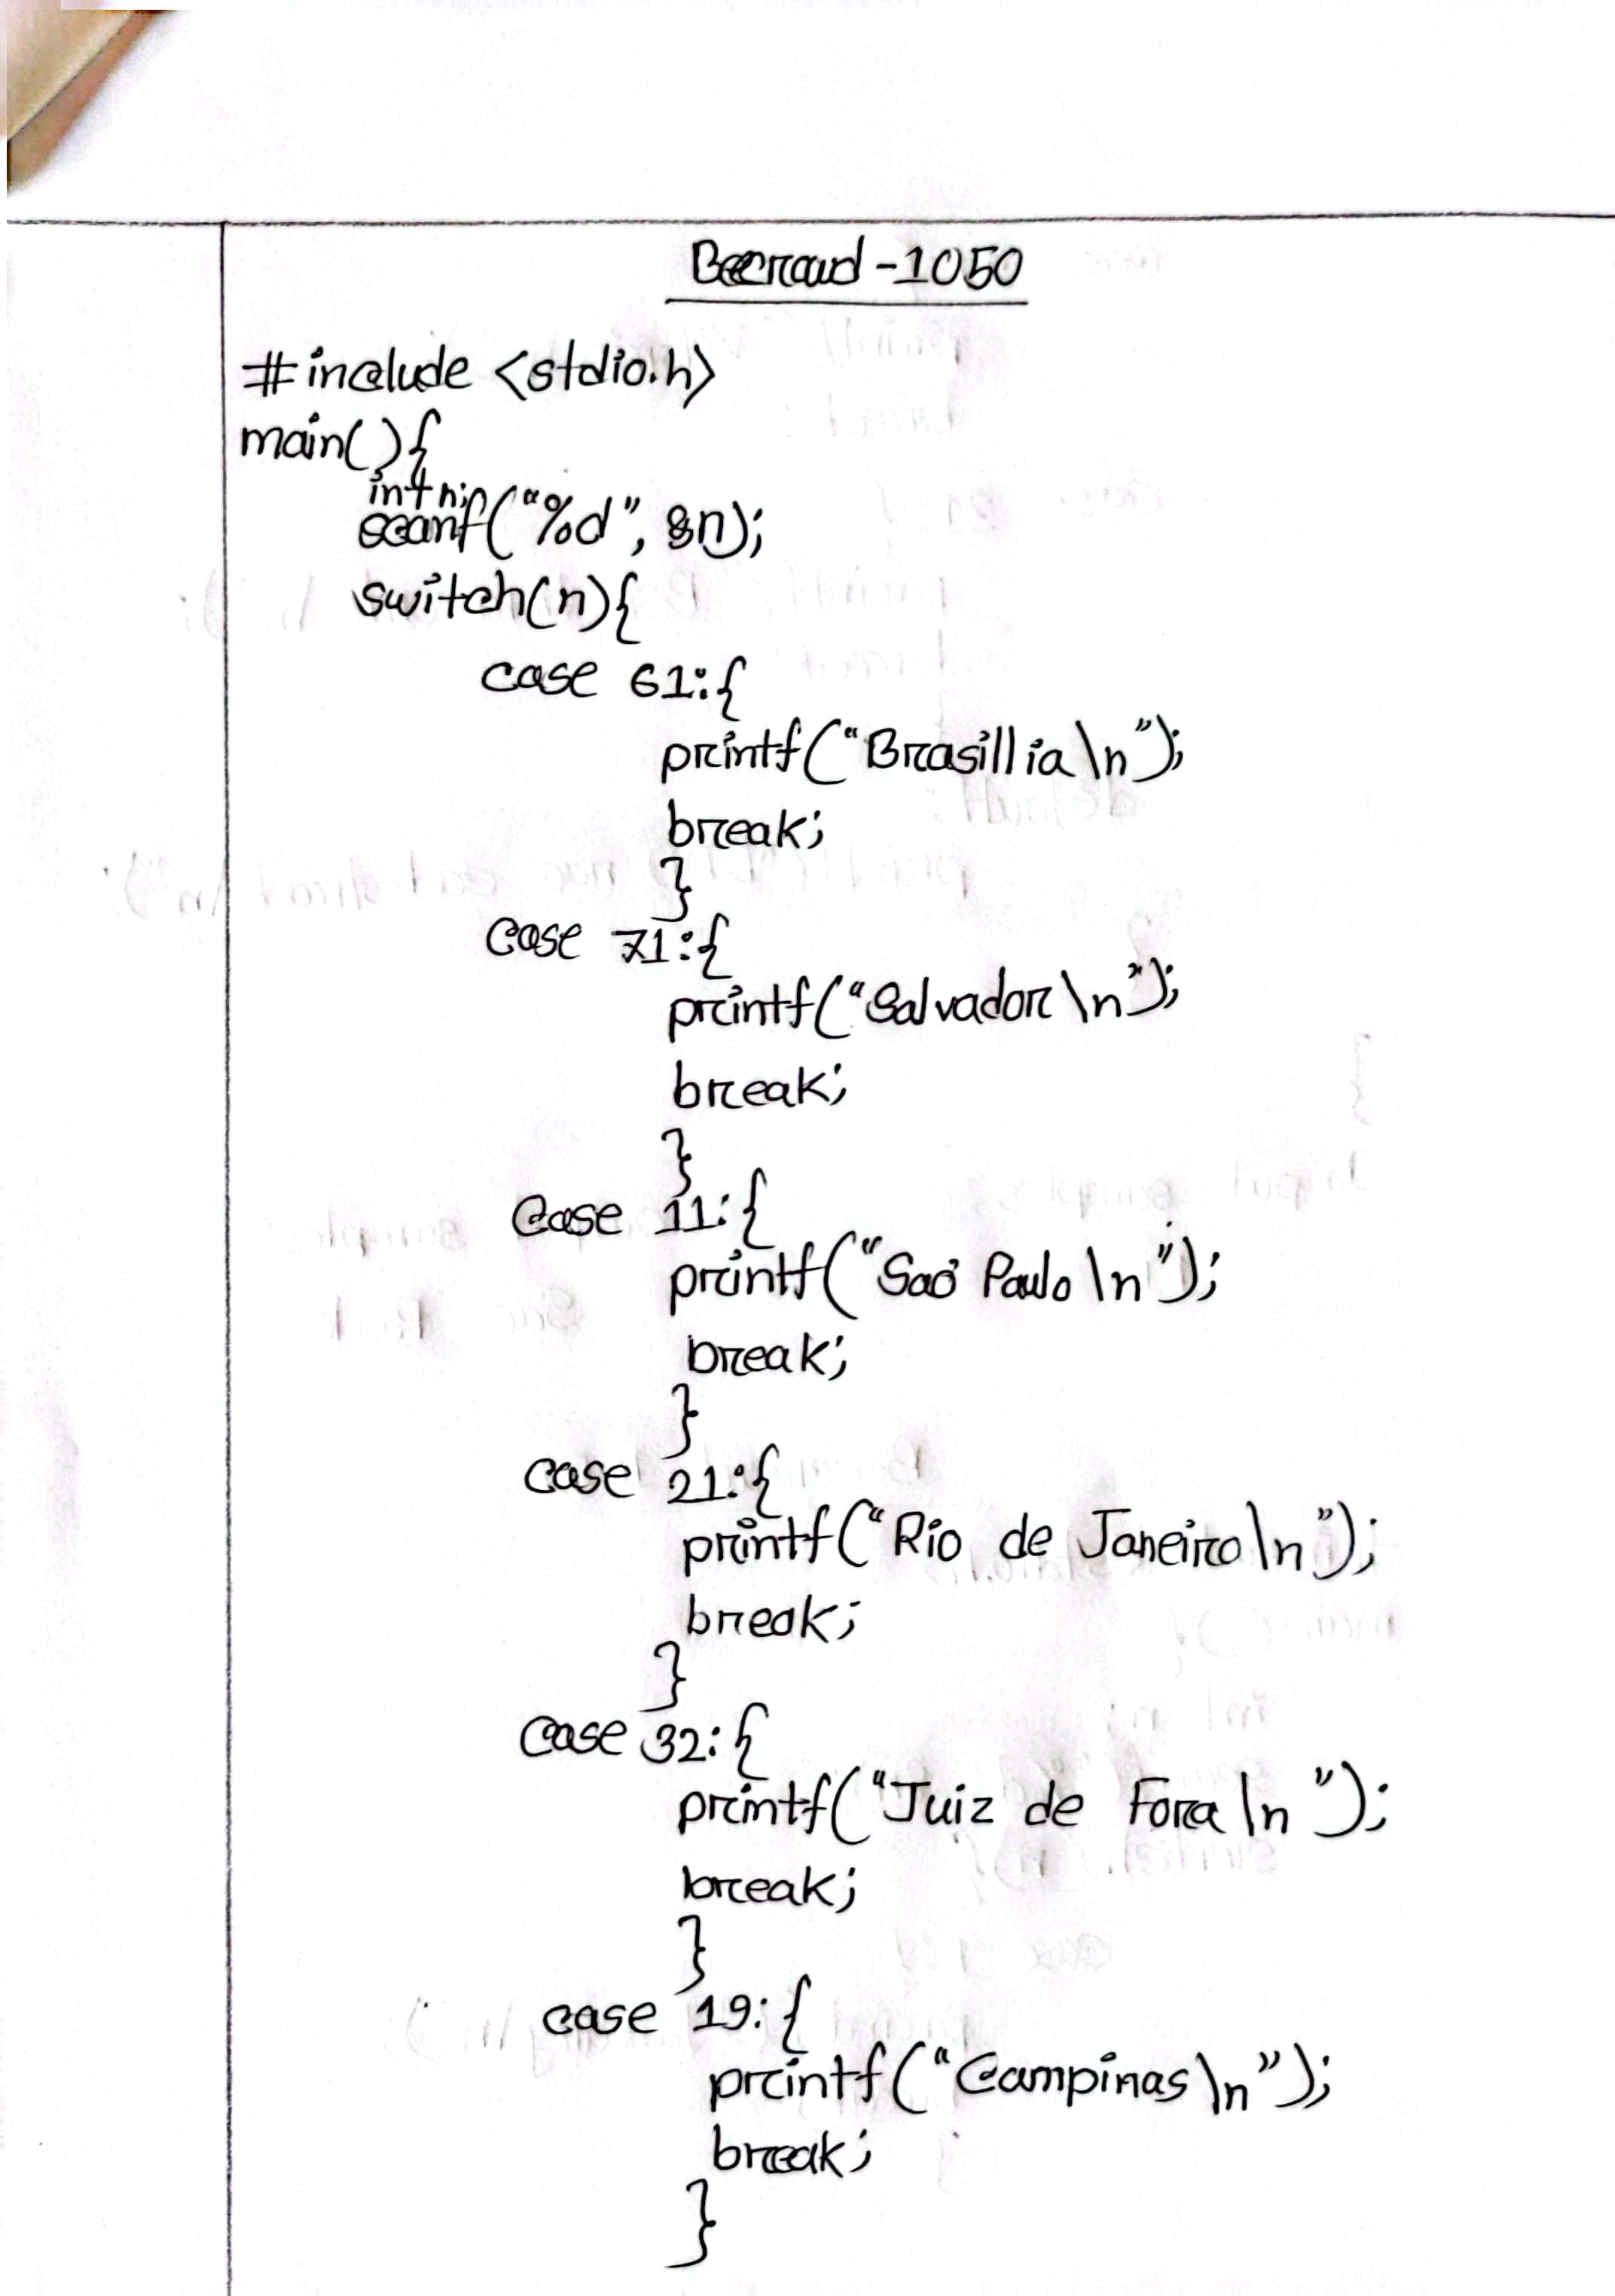 Beecrowd - 1050
#include <stdio.h>
main(){
int n;
scanf("%d", &n);
switch(n){
case 61:{
printf("Brasillia\n");
break;
}
case 71:{
printf("Salvador\n");
break;
}
case 11:{
printf("Sao Paulo\n");
break;
}
case 21:{
printf("Rio de Janeiro\n");
break;
}
case 32:{
printf("Juiz de Fora\n");
break;
}
case 19:{
printf("Campinas\n");
break;
}